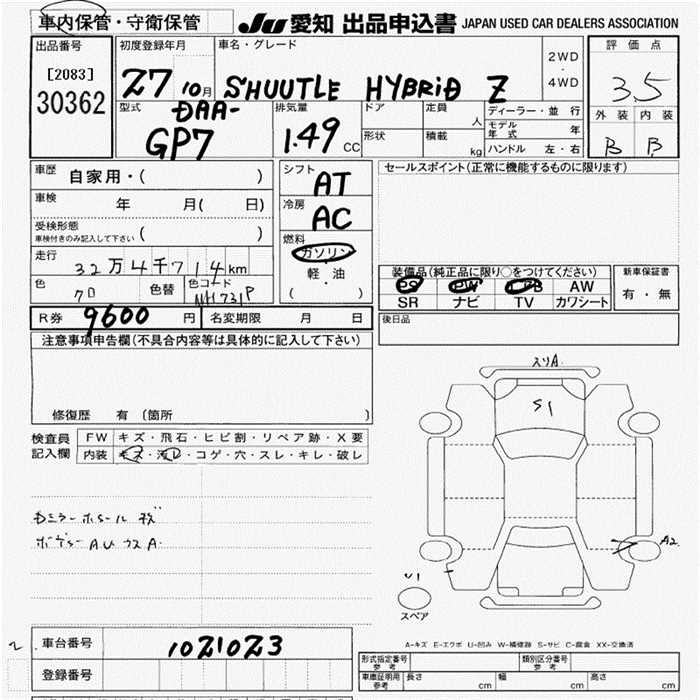 車内保管・守衛保管 Ju 愛知 出品申込書 JAPAN USED CAR DEALERS ASSOCIATION
出品番号 初度登録年月 車名・グレード 2WD ・ 4WD 評価点
[2083] 30362 27 10月 SHUUTLE HYBRiD Z 3.5
型式 DAA-GP7 排気量 1.49 CC ドア 定員 人 ディーラー・並行 外装 内装
形状 積載 kg モデル年式 年 B B
ハンドル 左・右
車歴 自家用・( ) シフト AT セールスポイント(正常に機能するものに限ります)
車検 年 月( 日) 冷房 AC
受検形態 車検付きのみ記入して下さい ( )
燃料 ガソリン 軽・油 ( )
走行 32万4千714km
色 クロ 色替 色コード NH731P
装備品(純正品に限り○をつけてください) 新車保証書
PS PW AB AW 有・無
SR ナビ TV カワシート
R券 9600 円 名変期限 月 日 後日品
注意事項申告欄(不具合内容等は具体的に記入して下さい)
修復歴 有 〔箇所 〕
検査員記入欄 FW キズ・飛石・ヒビ割・リペア跡・X要
内装 キズ・汚レ・コゲ・穴・スレ・キレ・破レ
スリA
S1
A2
U1
スペア
ボデーAUウスA.
A-キズ E-エクボ U-凹み W-補修跡 S-サビ C-腐食 XX-交換済
車台番号 1021023
登録番号
形式指定番号 参考 類別区分番号 参考
車庫証明用 参考 長さ cm 幅 cm 高さ cm